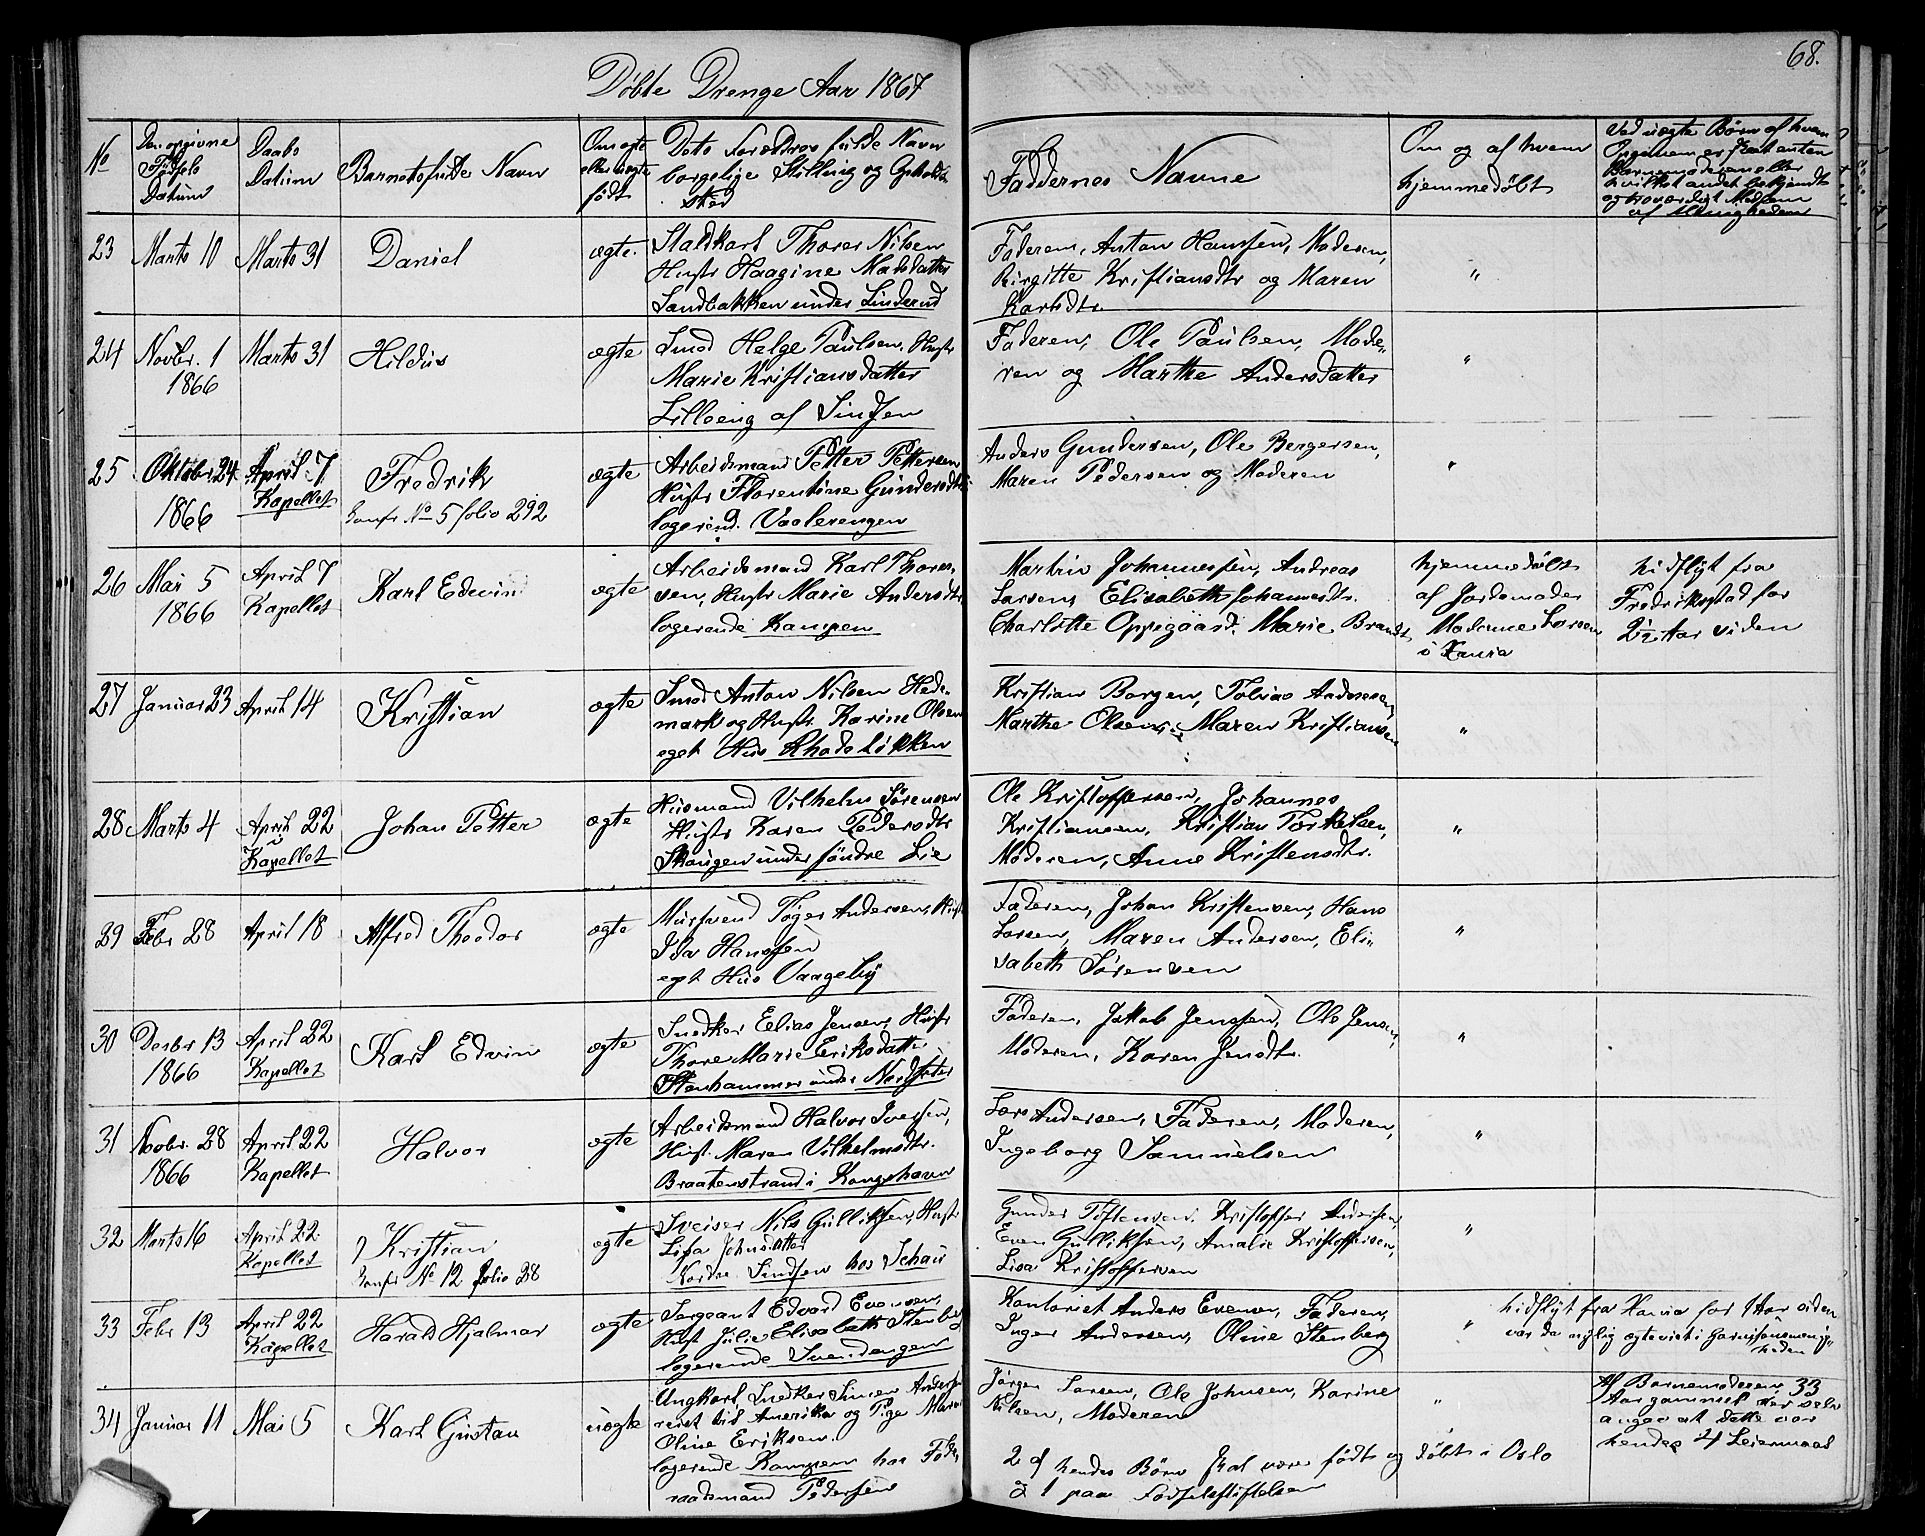 68.
Døbte Drenge Aar 1867
No
Den opgivne Fødsels Datum
Daabs Datum
Barnets fulde Navn
Om ægte eller uægte født
Dets Forældres fulde Navn borgelige Stilling og Opholdssted
Faddernes Navne
Om og af hvem hjemmedøbt
Ved uægte Børn af hvem
23 Marts 10 Marts 31 Daniel ægte.
Staldkarl Thorer Nilsen
Hustr Haagine Madsdatter
Sandbakken under Linderud
Faderen, Anton Hanssen, Moderen,
Birgitte Kristiansdtr og Maren
Karlsdtr. "
24 Novbr. 1 1866 Marts 31 Hildus ægte
Smed Helge Paulsen, Hustr
Marie Kristiansdatter
Lilloeng af Sinsen
Faderen, Ole Paulsen, Mode-
ren og Marthe Andersdatter "
25 Oktober 24 1866 April 7 Kapellet Fredrik
Konfr No 5 folio 292 ægte
Arbeidsmand Petter Pettersen
Hustr Florentine Gundersdtr
logerend. Vaalerengen
Anders Gundersen, Ole Bergersen,
Maren Pedersen og Moderen "
26 Mai 5 1866 April 7 Kapellet Karl Edevin ægte
Arbeidsmand Karl Thores-
sen, Hustr Marie Andersdtr
logerende Kampen
Martin Johannessen, Andreas
Larsen, Elisabeth Johannesdtr.
Charlotte Oppegaard, Marie Brandt
hjemmedøbt
af Jordemoder
Madame Larsen
i Xania
hidflyt fra
Fredrikstad for
2½ Aar siden
27 Januar 23 April 14 Kristian ægte
Smed Anton Nilsen Hede-
mark og Hustr. Karine Olsen
eget Hus Rhodeløkken
Kristian Borgen, Tobias Andersen,
Marthe Olsen, Maren Kristiansen "
28 Marts 4 April 22 Kapellet Johan Petter ægte
Husmand Vilhelm Sørensen
Hustr Karen Pedersdtr
Skougen under søndre Lie
Ole Kristoffersen, Johannes
Kristiansen, Kristian Torkelsen,
Moderen, Anne Kristensdtr. "
29 Febr 28 April 18 Alfred Theodor ægte
Mursvend Tøger Andersen, Hustr
Ida Hanssen
eget Hus Vaageby
Faderen, Johan Kristensen, Hans
Larsen, Maren Andersen, Eli-
sabeth Sørensen "
30 Decbr 13 1866 April 22 Kapellet Karl Edvin ægte
Snedker Elias Jensen, Hustr
Thore Marie Eriksdatter
Stenhammer under Nordseter
Faderen, Jakob Jenssen, Ole Jensen,
Moderen, Karen Jensdtr. "
31 Novbr. 28 1866 April 22 Kapellet Halvor ægte
Arbeidsmand Halvor Iversen,
Hust. Maren Vilhelmsdtr.
Braatenstrand i Kongshavn
Lars Andersen, Faderen, Moderen,
Ingeborg Samuelsen "
32 Marts 16 April 22 Kapellet Kristian
Konfr No 12 folio 28 ægte
Sveiser Nils Gulliksen, Hustr
Lisa Johnsdatter
Nordre Sindsen hos Schau
Gunder Tostensen, Kristoffer Andersen,
Even Gulliksen, Amalie Kristoffersen,
Lisa Kristoffersen "
33 Febr 13 April 22 Kapellet Harald Hjalmar ægte
Sergeant Edvard Evensen,
Hust Julie Elisabeth Stenberg
logerende Svendengen
Kontorist Anders Evensen, Faderen,
Inger Andersen, Oline Stenberg "
hidflyt fra Xania for 1 Aar siden
var da nylig ægteviet i Garnisonsmenig-
heden
34 Januar 11 Mai 5 Karl Gustav uægte
Ungkarl, Snedker Simen Andersen
reist til Amerika og Pige Maren
Oline Eriksen.
logerende Kampen hos Føde-
raadsmand Pedersen
Jørgen Larsen, Ole Johnsen, Karine
Nilsen, Moderen "
2 af hendes Børn skal være født og døbt i Oslo
og 1 paa Fødselsstiftelsen
Af Barnemoderen, 33
Aar gammel der selv
angav at dette var
hendes 4 Leiermaal